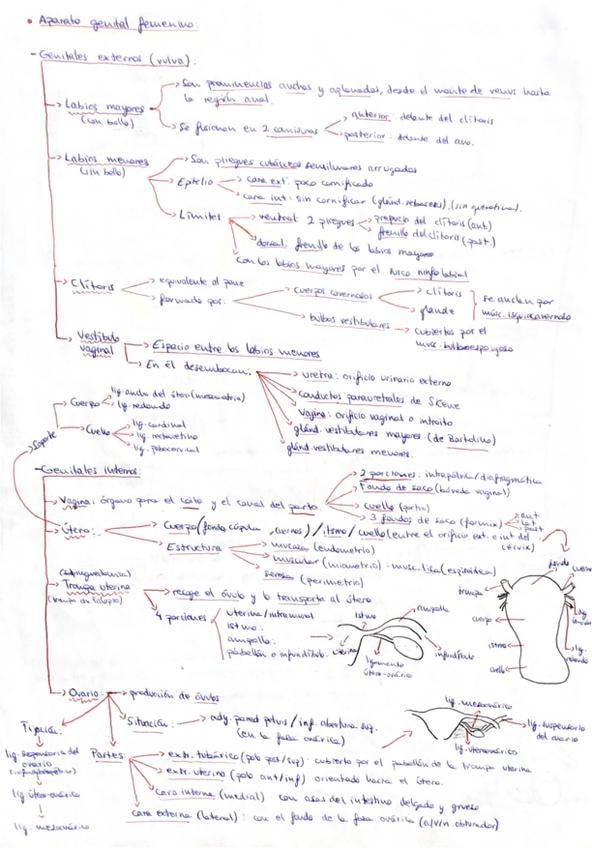 • Aparato genital femenino:
- Genitales externos (vulva):
→ Labios mayores
(con bello)
→ Son prominencias anchas y aplanadas, desde el monte de venus hasta
la región anal.
→ Se fusionan en 2 comisuras
→ anterior: delante del clítoris
→ posterior: delante del ano.
→ Labios menores
(sin bello)
→ Son pliegues cutáneos semilunares arrugados
→ Epitelio
→ cara ext: poco cornificado
→ cara int: sin cornificar (gland. sebaceas). (sin queratina).
→ Límites
→ ventral 2 pliegues
→ prepucio del clítoris (ant.)
→ frenillo del clítoris (post.)
→ dorsal: frenillo de los labios mayores
→ con los labios mayores por el surco ninfolabial
→ Clítoris
→ equivalente al pene
→ formado por:
→ cuerpos cavernosos
→ clítoris
→ glande
se anclan por
músc. isquiocavernoso
→ bulbos vestibulares → cubiertos por el
musc. bulboesponjoso
→ Vestíbulo
vaginal
→ Espacio entre los labios menores
→ En él desembocan:
→ uretra: orificio urinario externo
→ conductos parauretrales de Skene
→ vagina: orificio vaginal o introito
→ glánd. vestibulares mayores (de Bartolino)
glánd vestibulares menores.
→ Soporte
→ Cuerpo
→ lig. ancho del útero (mesometrio)
→ lig. redondo
→ Cuello
→ lig. cardinal
→ lig. rectouterino
→ lig. pubocervical
- Genitales internos:
→ Vagina: órgano para el coito y el canal del parto
→ 2 porciones: intrapélvica/diafragmática
→ Fondo de saco (bóveda vaginal)
→ cuello (portio)
→ 3 fondos de saco (fornix)
→ ant
→ lat
→ post
→ Útero:
→ Cuerpo (fondo cúpula, cuernos) / itsmo / cuello (entre el orificio ext. e int del
cérvix)
→ Estructura
→ mucosa (endometrio)
→ muscular (miometrio): musc. lisa (espiroidea)
→ serosa (perimetrio)
→ Trompa uterina
(trompa de falopio)
→ recoge el óvulo y lo transporta al útero
→ 4 porciones
uterina/intramural
istmo:
ampolla:
pabellón o infundíbulo.
istmo
ampolla
uterina
ligamento
útero-ovárico
infundíbulo
fondo
cuerno
trompa
cuerpo
istmo
cuello
lig.
redondo
→ Ovario:
→ producción de óvulos
→ Situación: → adyª pared pelvis / inf. abertura sup.
(en la fosa ovárica)
lig. mesoovárico
lig. suspensorio
del ovario
lig. uteroovárico
Fijación:
lig. suspensorio del
ovario
↓
lig útero-ovárico
↓
lig. mesoovárico
Partes:
→ extr. tubárico (polo post/sup): cubierto por el pabellón de la trompa uterina
→ extr. uterino (polo ant/inf) orientado hacia el útero.
→ Cara interna (medial) con asas del intestino delgado y grueso
→ Cara externa (lateral): con el fondo de la fosa ovárica (a/v/n. obturador)